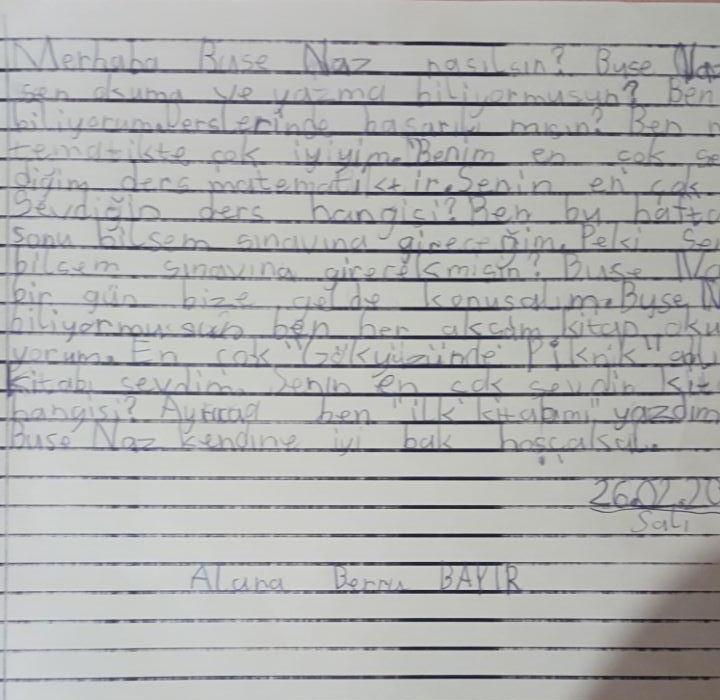 Merhaba Buse Naz nasılsın? Buse Naz
sen okuma ve yazma biliyormusun? Ben
biliyorum. Derslerinde başarılı mısın? Ben
tematikte çok iyiyim. Benim en çok se
diğim ders matematiktir. Senin en çok
Sevdiğin ders hangisi? Ben bu hafta
sonu bilsem sınavına gireceğim. Peki Sen
bilsem sınavına girecekmisin? Buse Na
bir gün bize gelde konuşalım. Buse N
biliyormusun ben her akşam kitap oku
yorum. En çok "Gökyüzünde Piknik" adlı
Kitabı sevdim. Senin en çok sevdin kit
hangisi? Ayrıca ben "ilk kitabımı" yazdım
Buse Naz kendine iyi bak
26.02.20
Salı
Berru BAYIR